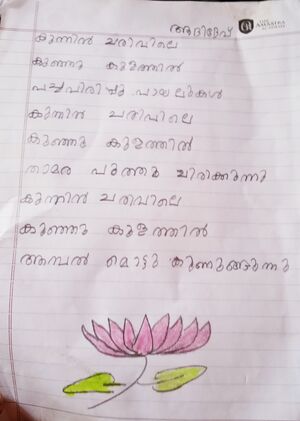 ആദിദേവ്
കുന്നിൻ ചരിവിലെ
കുഞ്ഞു കുളത്തിൽ
പച്ചവിരിച്ചു പായലുകൾ
കുന്നിൻ ചരിവിലെ
കുഞ്ഞു കുളത്തിൽ
താമര പൂത്തു ചിരിക്കുന്നു
കുന്നിൻ ചരിവിലെ
കുഞ്ഞു കുളത്തിൽ
ആമ്പൽ മൊട്ടു കുണുങ്ങുന്നു